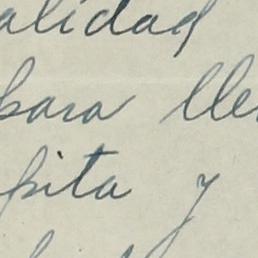 alidad
para lle
pita y